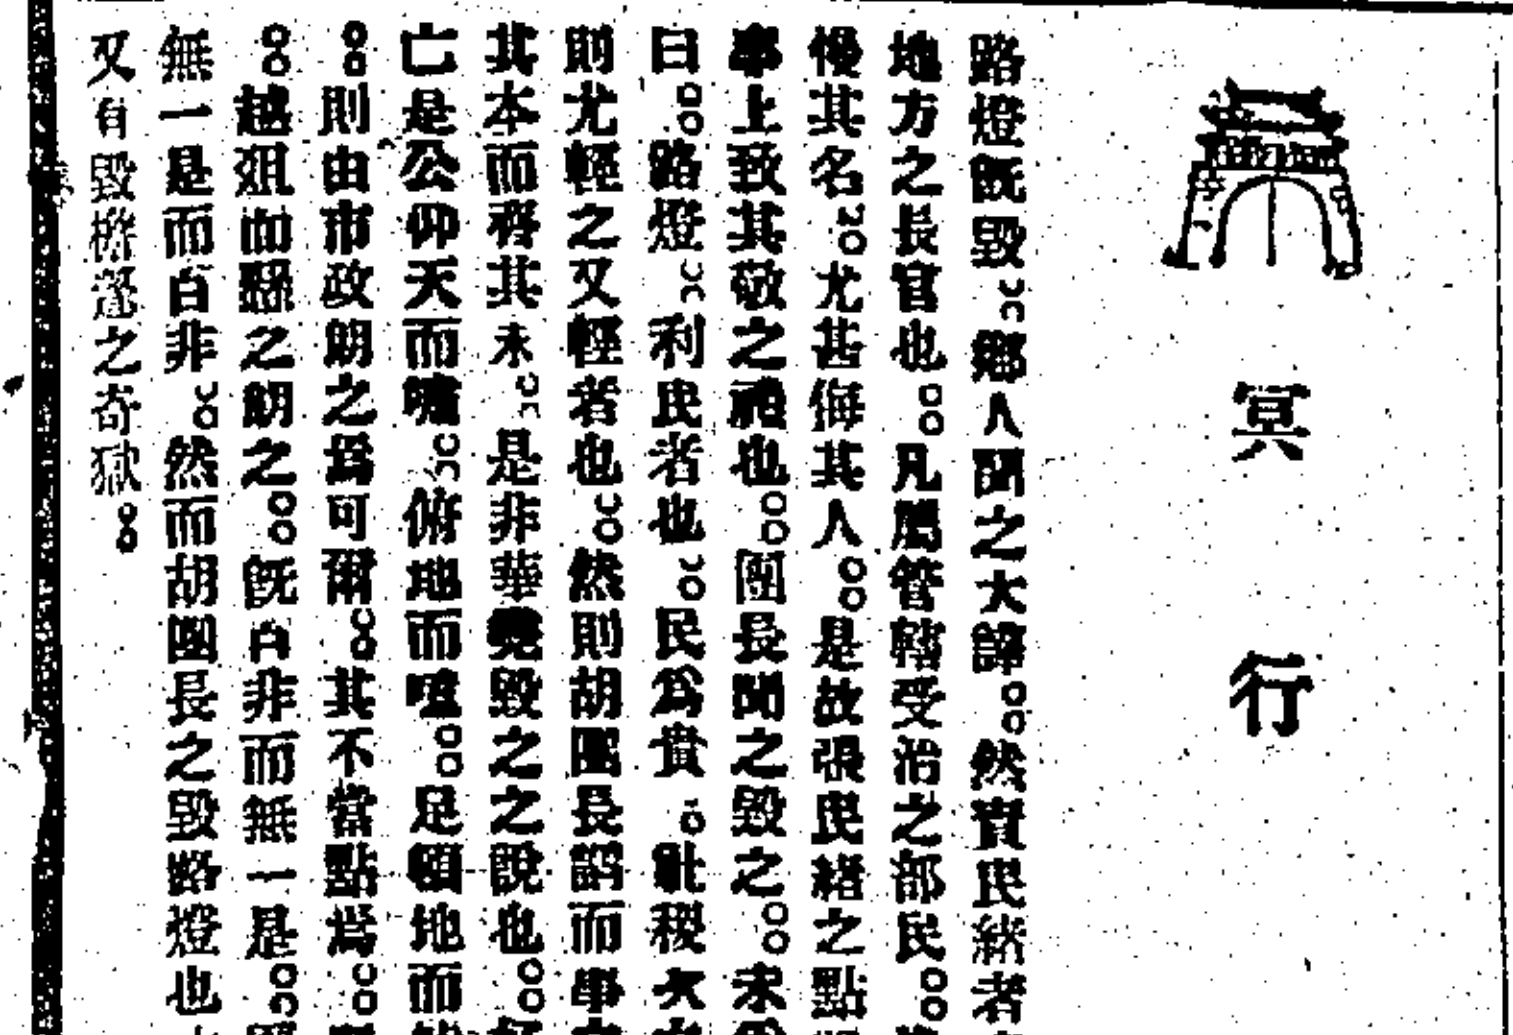 冥行
路燈旣毀。鄉人聞之大譁。然賁民緒者
地方之長官也。凡屬管轄受治之部民。
慢其名。尤甚侮其人。是故張民緒之點
事上致其敬之禮也。團長聞之毀之。未
曰。路燈。利民者也。民爲貴。社稷次
則尤輕之又輕者也。然則胡團長謂而事
其本而齊其末。是非華堯毀之之說也。
亡是公仰天而嘯。俯地而噓。足頓地而
則由市政朗之爲可爾。其不當點焉。
越俎而懸之朗之。旣百非而無一是。
無一是而百非。然而胡團長之毀路燈也
又有毀燈之奇獄。